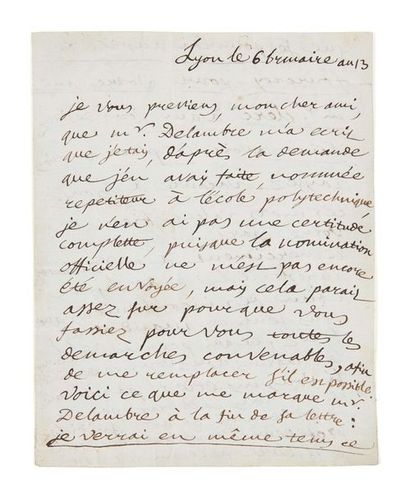 Lyon le 6 brumaire an 13
je vous previens, mon cher ami,
que mr. Delambre m'a ecrit
que j'etais, d'après la demande
que j'en avais faite, nommée
repetiteur à l'école polytechnique
je n'en ai pas une certitude
complette, puisque la nomination
officielle ne m'est pas encore
été envoyée, mais cela parait
assez sur pour que vous
fassiez pour vous toutes les
demarches convenables, afin
de me remplacer s'il est possible.
Voici ce que me marque mr.
Delambre à la fin de sa lettre:
je verrai en même tems ce